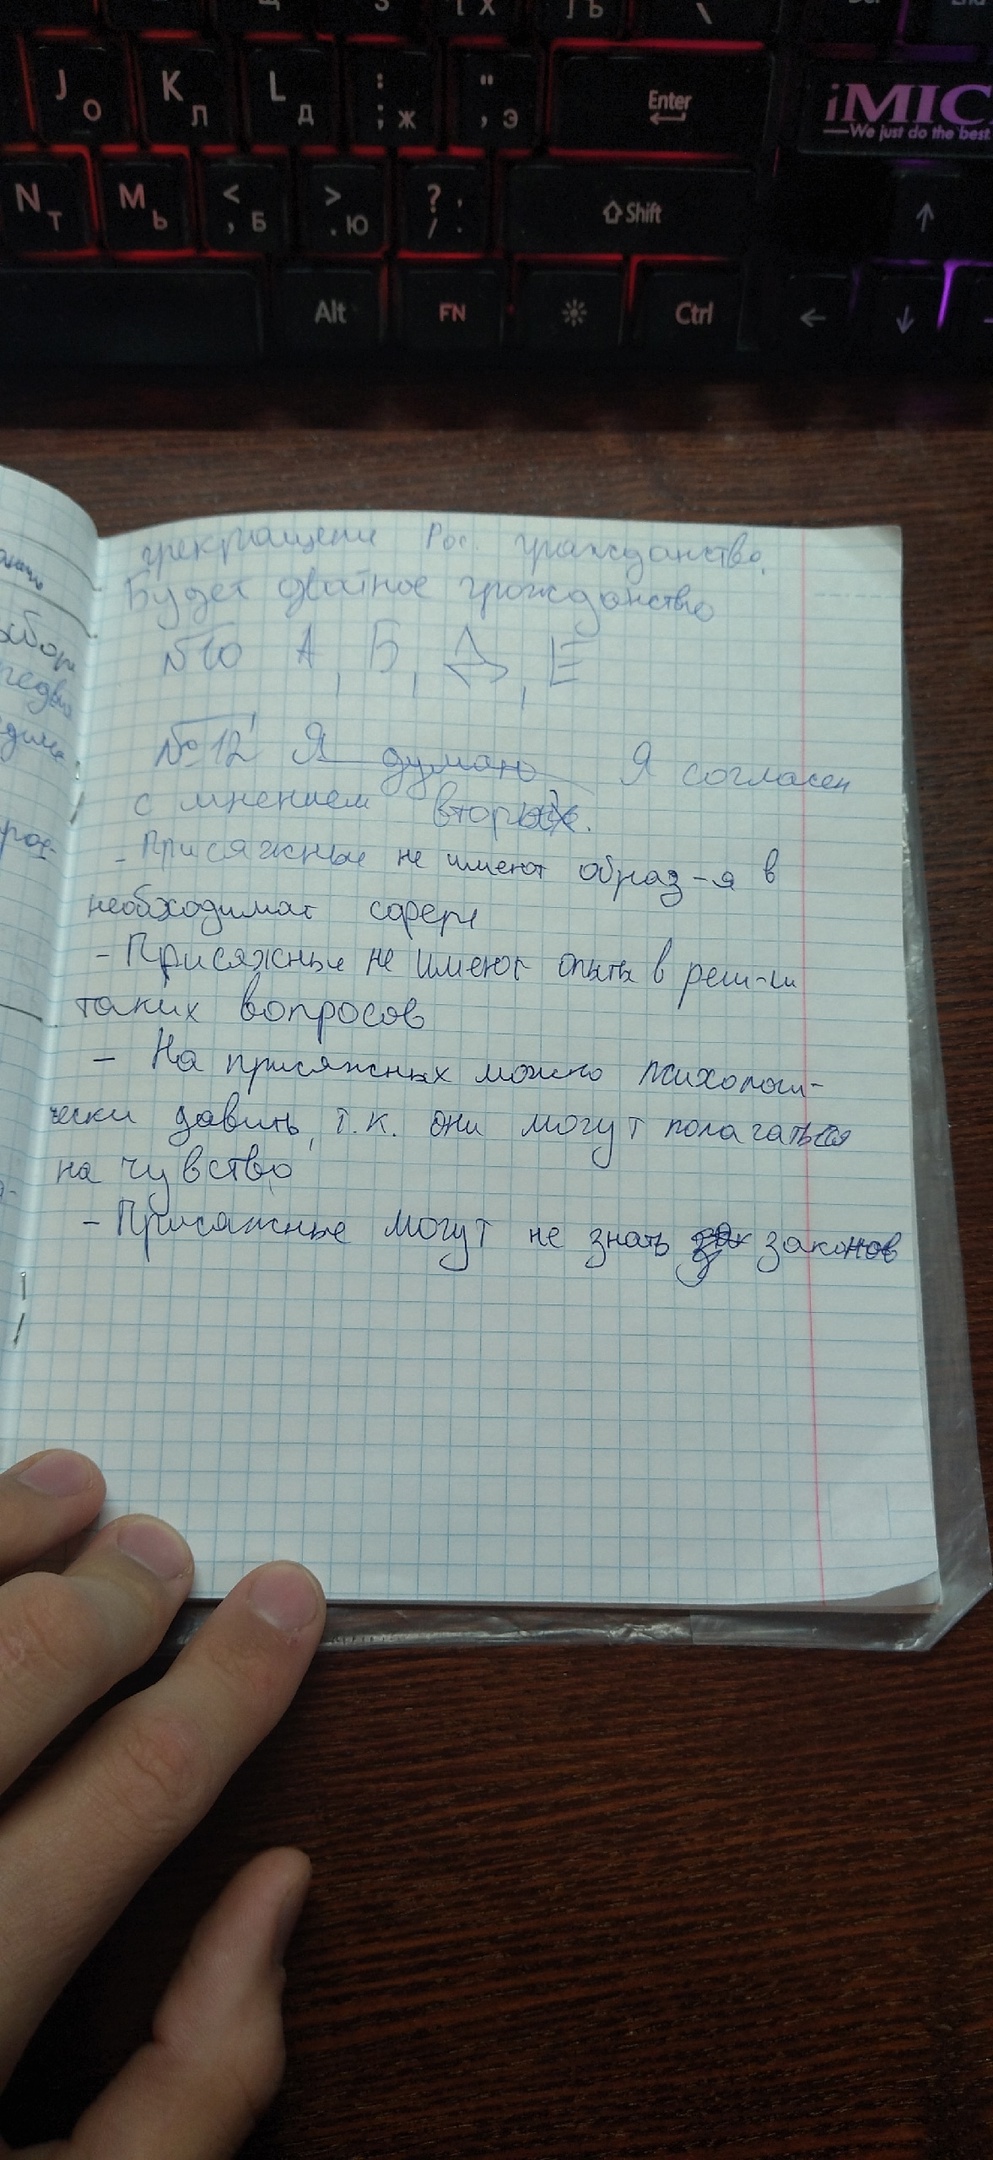 J О
K Л
L Д
: ; Ж
" , Э
Enter
iMIC
We just do the best
N Т
M Ь
< , Б
> . Ю
? / , .
Shift
Alt
FN
Ctrl
прекращени Рос. гражданство.
Будет двойное гражданство
№10 А, Б, Д, Е
№12 Я думаю Я согласен
с мнением вторых.
- Присяжные не имеют образ-я в
необходимой сфере
- Присяжные не имеют опыта в реш-ии
таких вопросов
- На присяжных можно психологи-
чески давить, т.к. они могут полагаться
на чувство
- Присяжные могут не знать законов